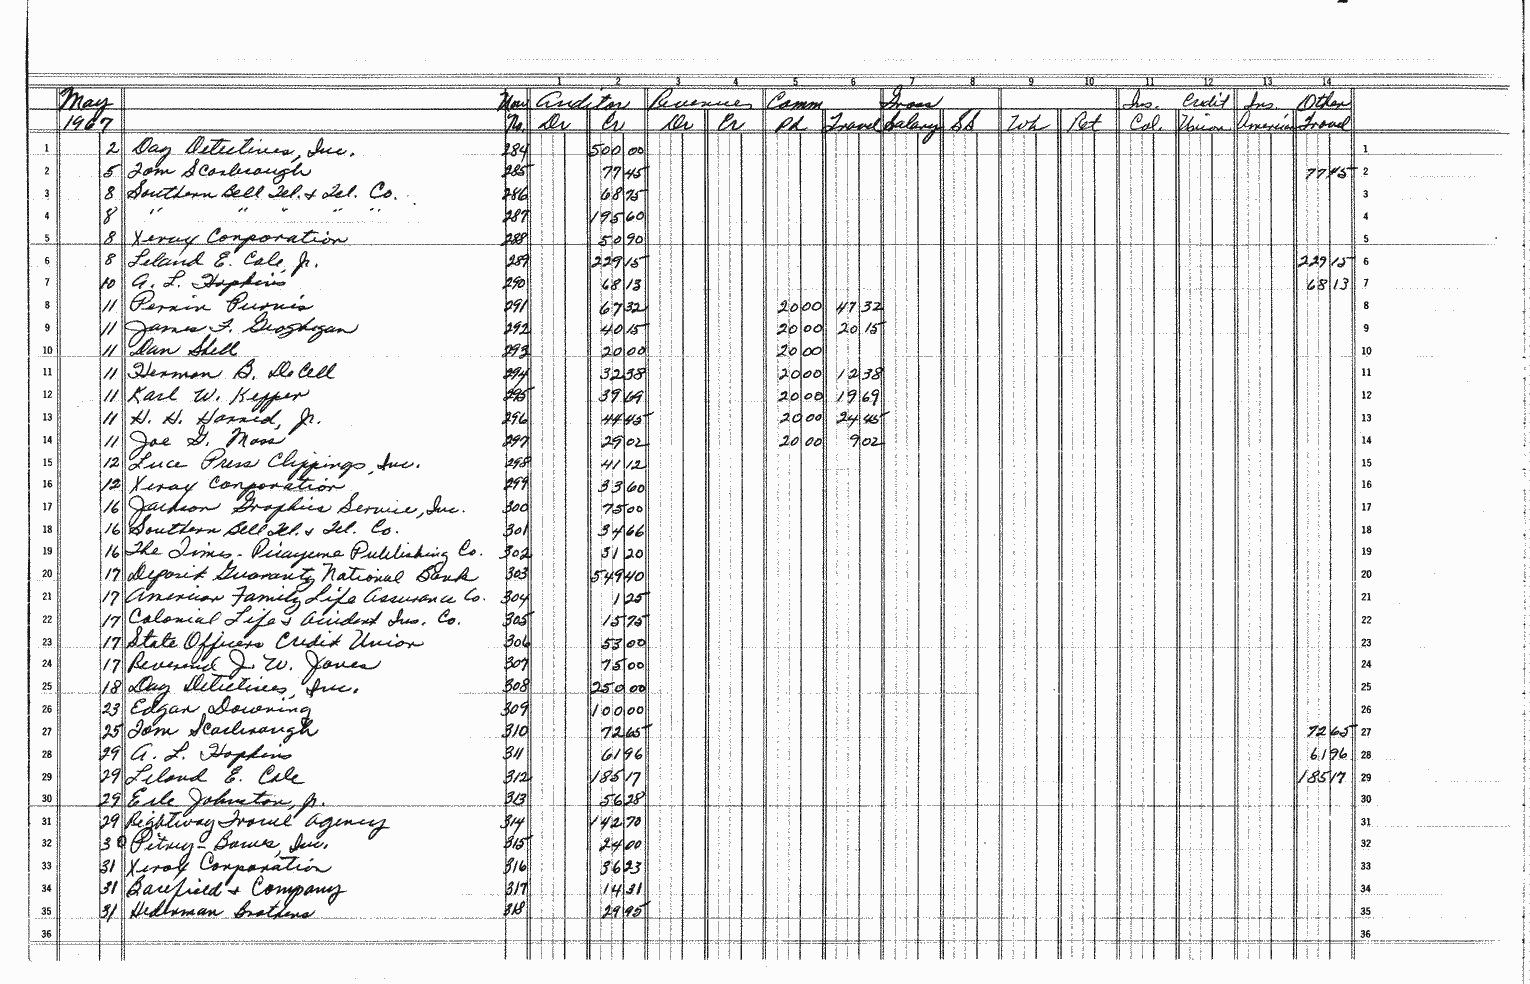 1 2 3 4 5 6 7 8 9 10 11 12 13 14
May Auditor Revenues Comm Gross Ins. Credit Ins. Other
1967 No. Dr Cr Dr Cr Pd Travel Salary SS Wh Ret Col. Union American Travel
1 2 Day Detectives, Inc. 284 500 00 1
2 5 Tom Scarbrough 285 77 45 77 45 2
3 8 Southern Bell Tel. & Tel. Co. 286 68 75 3
4 8 " " " " " 287 195 60 4
5 8 Xerox Corporation 288 50 90 5
6 8 Leland E. Cole, Jr. 289 229 15 229 15 6
7 10 A. L. Hopkins 290 68 13 68 13 7
8 11 Perrin Purvis 291 67 32 20 00 47 32 8
9 11 James F. Geoghegan 292 40 15 20 00 20 15 9
10 11 Dan Shell 293 20 00 20 00 10
11 11 Herman B. DeCell 294 32 38 20 00 12 38 11
12 11 Karl W. Kepper 295 39 69 20 00 19 69 12
13 11 H. H. Harned, Jr. 296 44 45 20 00 24 45 13
14 11 Joe G. Moss 297 29 02 20 00 9 02 14
15 12 Luce Press Clippings, Inc. 298 41 12 15
16 12 Xerox Corporation 299 33 60 16
17 16 Jackson Graphics Service, Inc. 300 75 00 17
18 16 Southern Bell Tel. & Tel. Co. 301 34 66 18
19 16 The Times-Picayune Publishing Co. 302 31 20 19
20 17 Deposit Guaranty National Bank 303 549 40 20
21 17 American Family Life Assurance Co. 304 1 25 21
22 17 Colonial Life & Accident Ins. Co. 305 15 75 22
23 17 State Officers Credit Union 306 53 00 23
24 17 Reverend J. W. Jones 307 75 00 24
25 18 Day Detectives, Inc. 308 250 00 25
26 23 Edgar Downing 309 100 00 26
27 25 Tom Scarbrough 310 72 65 72 65 27
28 29 A. L. Hopkins 311 61 96 61 96 28
29 29 Leland E. Cole 312 185 17 185 17 29
30 29 Erle Johnston, Jr. 313 56 28 30
31 29 Rightway Travel Agency 314 142 70 31
32 30 Pitney-Bowes, Inc. 315 24 00 32
33 31 Xerox Corporation 316 36 23 33
34 31 Barefield & Company 317 14 31 34
35 31 Hederman Brothers 318 29 95 35
36 36